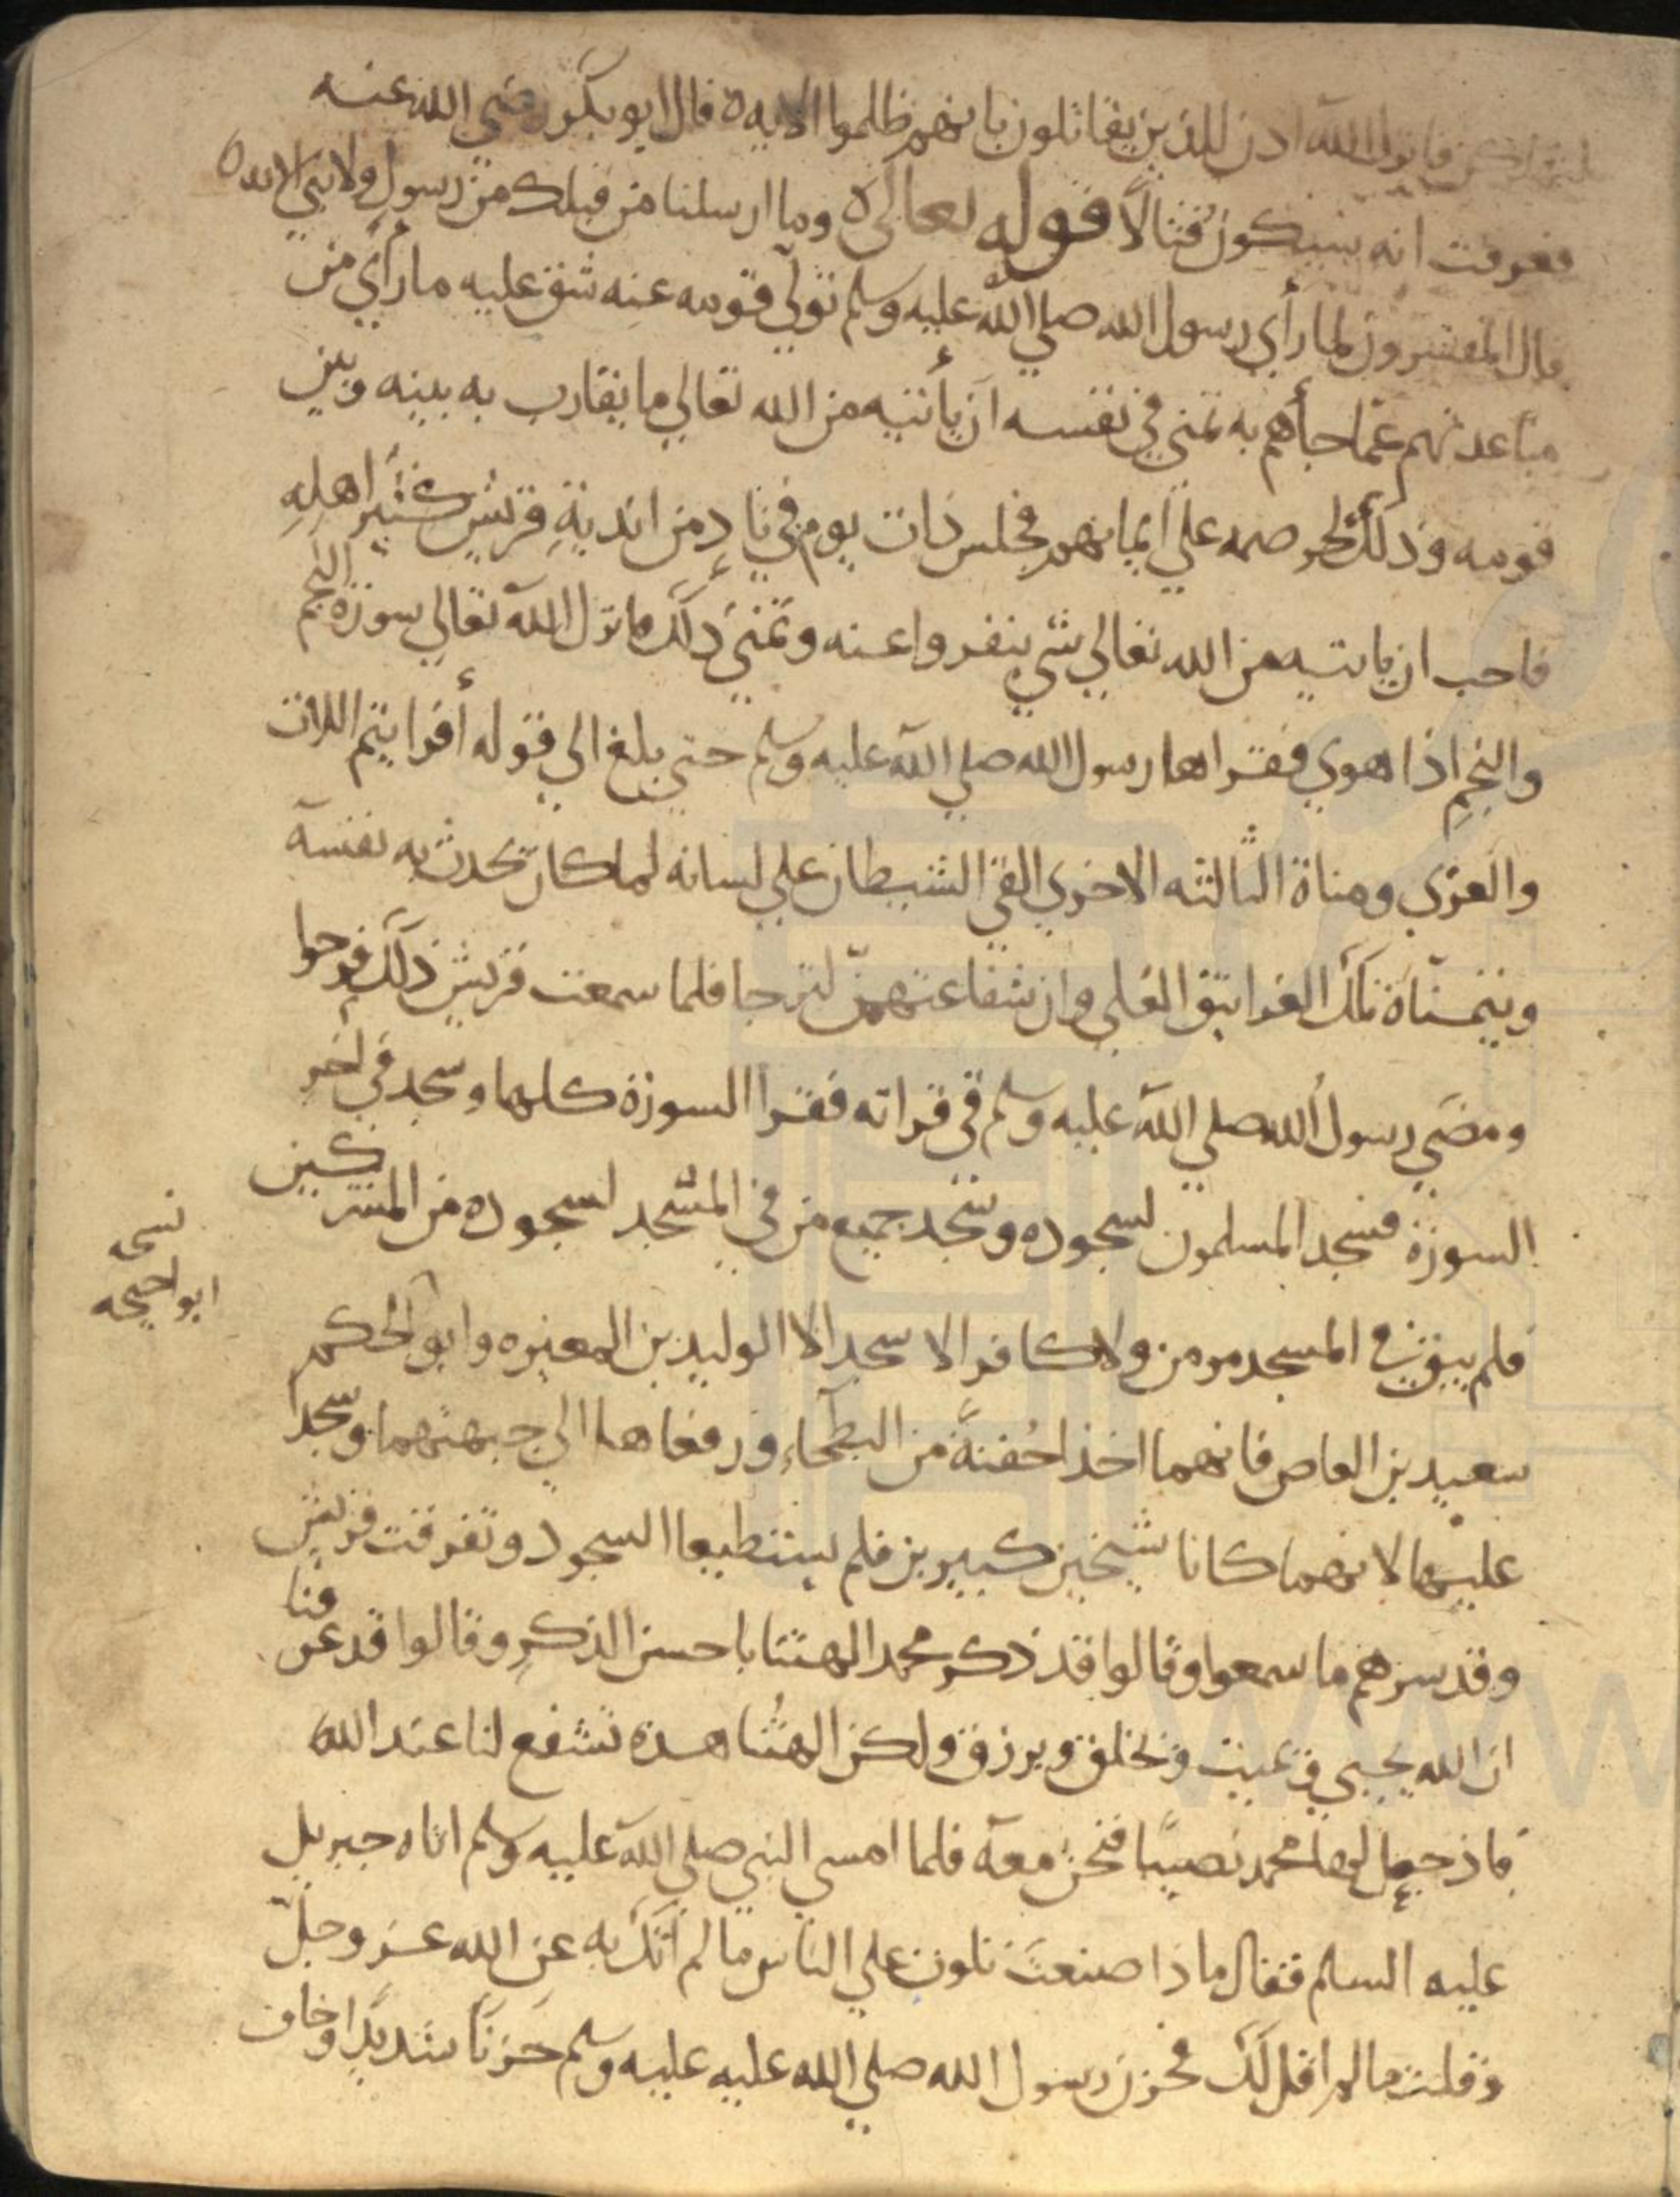 فانزل الله ادن للذين يقاتلون بانهم ظلموا الايه ه قال ابو بكر رضي الله عنه
فعرفت انه سيكون قتالا قوله تعالى ه وما ارسلنا من قبلك من رسول ولا نبي الايه ه
قال المفسرون لما رأي رسول الله صلي الله عليه وسلم تولي قومه عنه شق عليه ما رأي من
مباعدتهم عما جأهم به تمني في نفسه ان يأتيه من الله تعالي ما يقارب به بينه وبين
قومه وذلك لحرصه علي ايمانهم فجلس ذات يوم في ناد من اندية قريش كثير اهله
فاحب ان ياتيه من الله تعالي شي ينفروا عنه وتمني ذلك فانزل الله تعالي سورة النجم
والنجم اذا هوي فقراها رسول الله صلي الله عليه وسلم حتي بلغ الي قوله أفرايتم اللات
والعزي ومناة الثالثه الاخري القي الشيطان علي لسانه لما كان يحدث به نفسه
ويتمناه تلك الغرانيق العلي وان شفاعتهن لترجا فلما سمعت قريش ذلك فرحوا
ومضي رسول الله صلي الله عليه وسلم في قراته فقرا السورة كلها وسجد في اخر
السورة فسجد المسلمون لسجوده وسجد جميع من في المسجد لسجوده من المشركين
فلم يبق في المسجد مومن ولا كافر الا سجد الا الوليد بن المغيره وابو الحكم
نسخه
ابو احيحه
سعيد بن العاص فانهما اخذا حفنة من البطحاء ورفعاها الي جبهتهما وسجدا
عليها لانهما كانا شيخين كبيرين فلم يستطيعا السجود وتفرقت قريش
وقد سرهم ما سمعوا وقالوا قد ذكر محمد الهتنا باحسن الذكر وقالوا قد عرفنا
ان الله يحيي ويميت ويخلق ويرزق ولكن الهتنا هذه تشفع لنا عند الله
فاذ جعل لها محمد نصيبا فنحن معه فلما امسي النبي صلي الله عليه وسلم اتاه جبريل
عليه السلم فقال ماذا صنعت تلوت علي الناس ما لم اتك به عن الله عز وجل
وقلت ما لم اقل لك فحزن رسول الله صلي الله عليه عليه وسلم حزنا شديدا وخاف